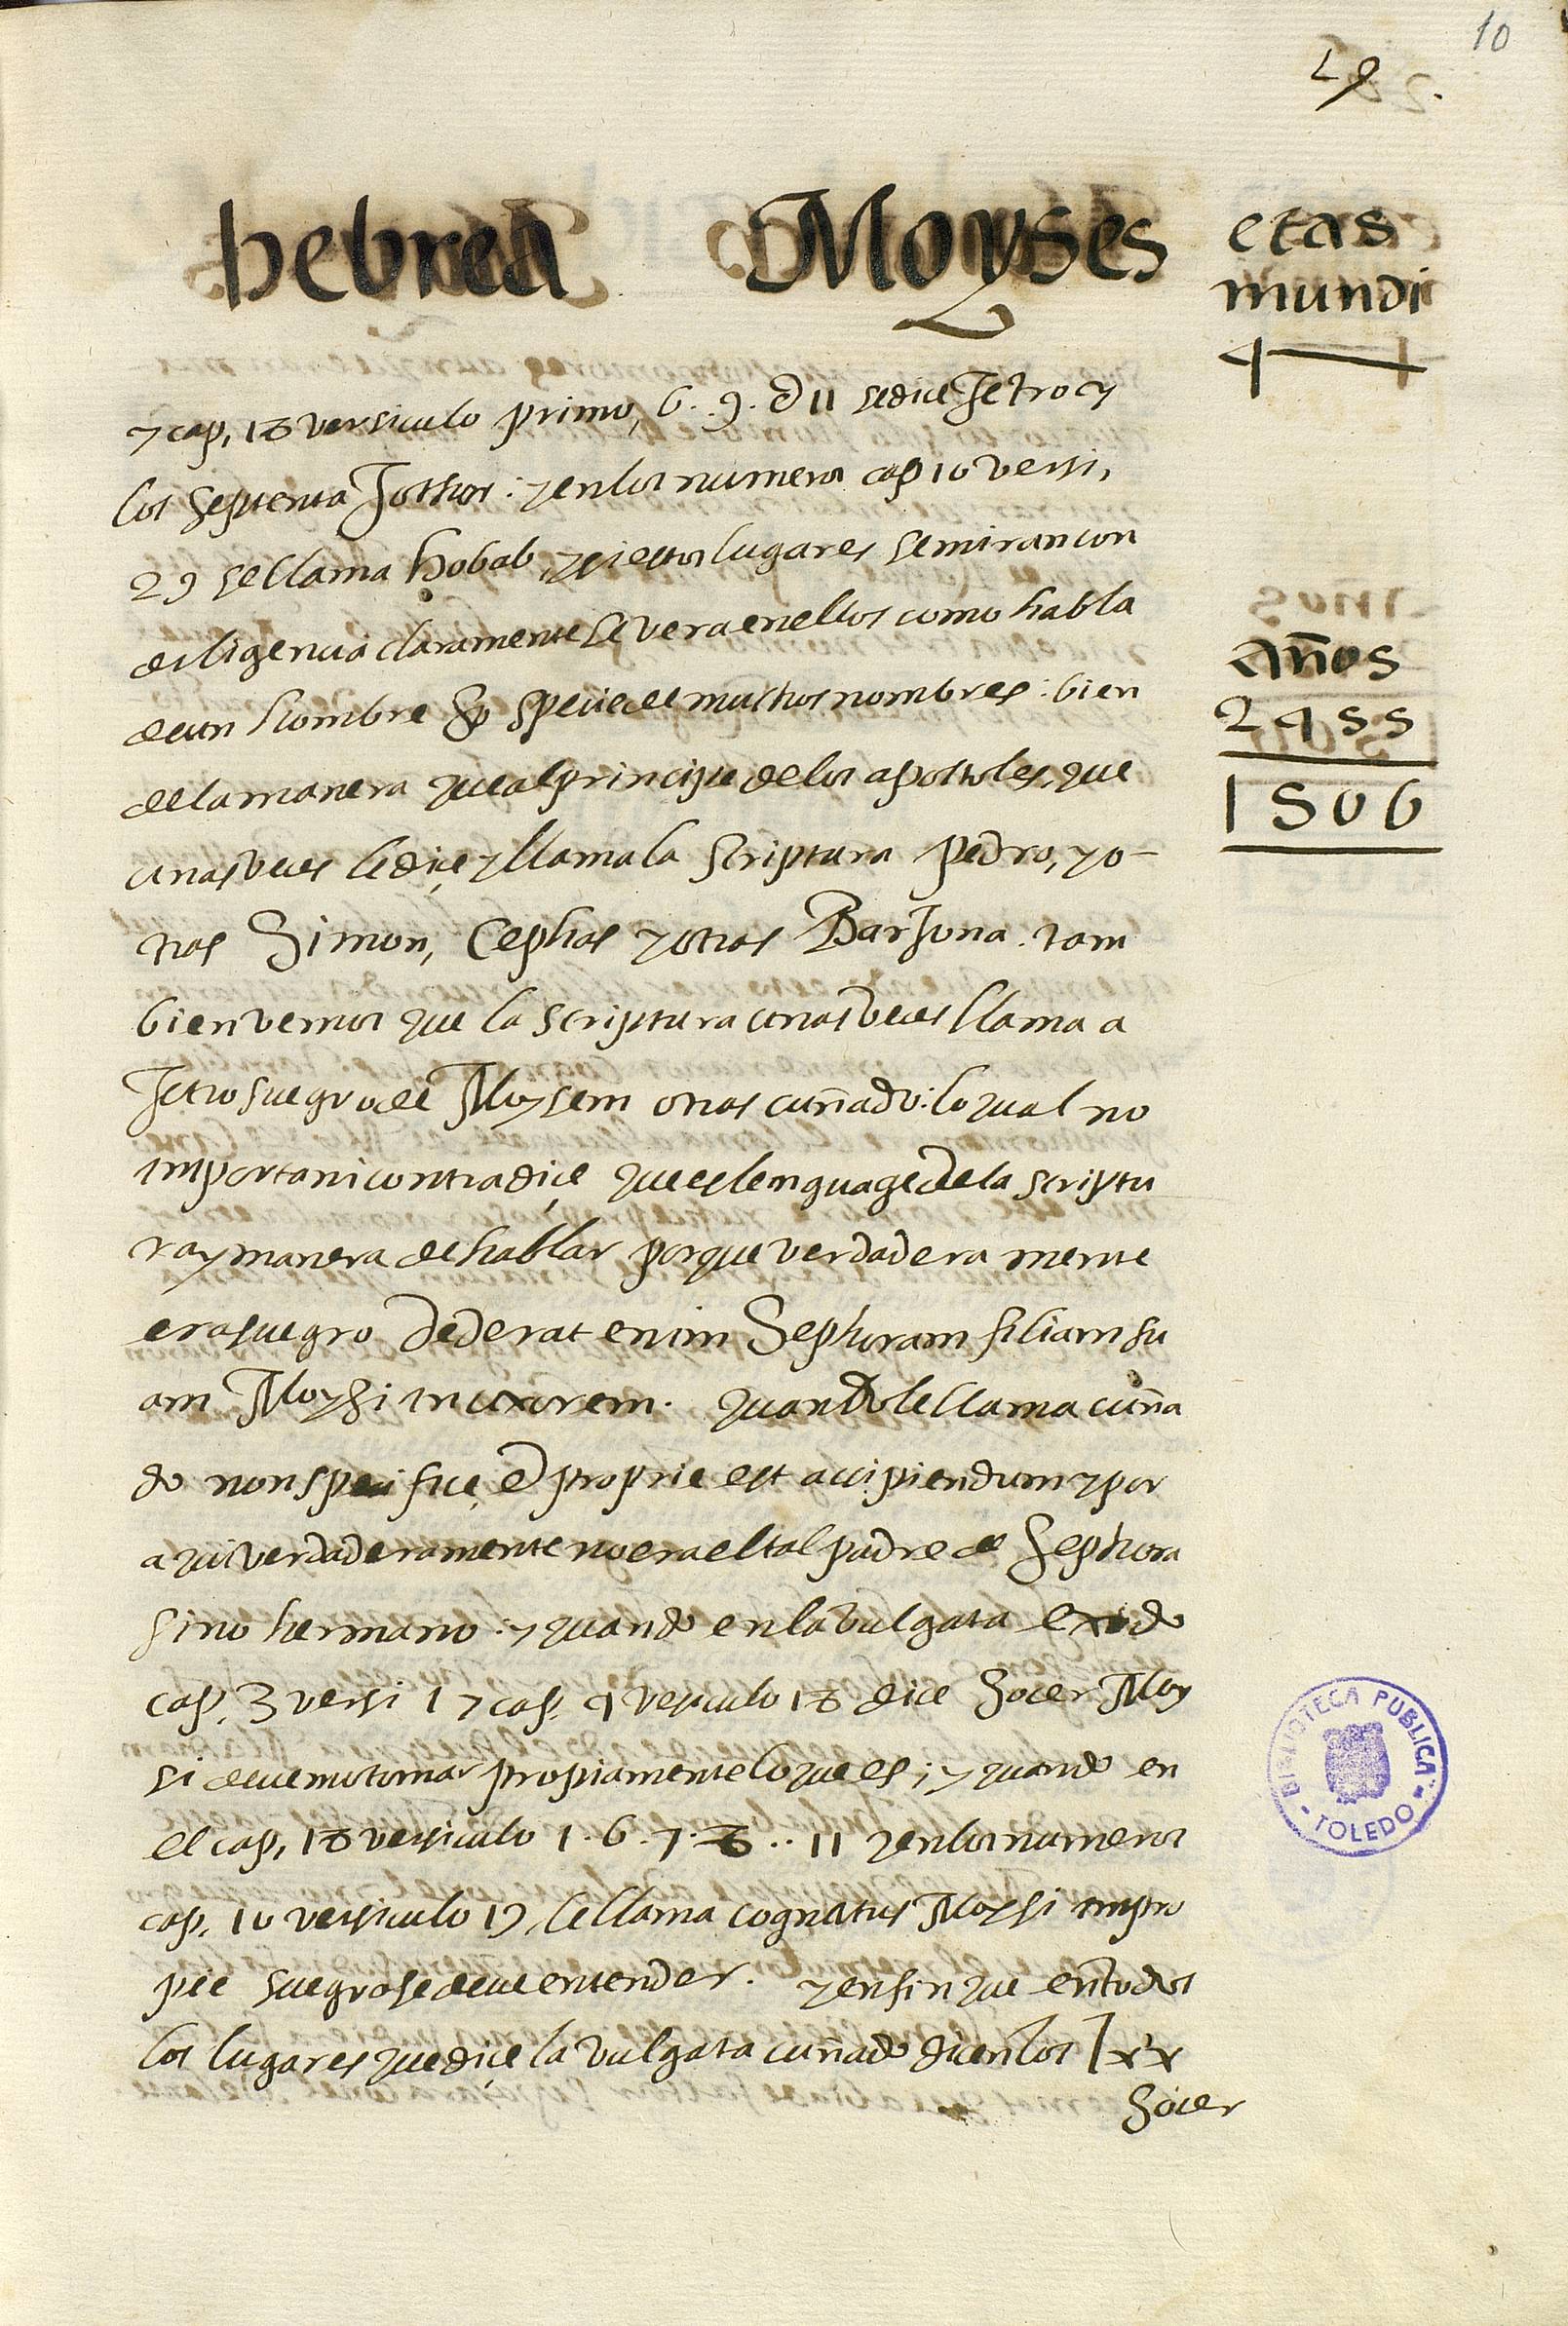 10
29
hebrea Moyses
etas
mundi
4
y cap, 18 versiculo primo, 6. 9. & 11 se dice Jetro y
los septenta Jothor: y en los numeros cap 10 versi,
29 se llama hobab, y si estos lugares se miran con
diligencia claramente se vera en ellos como habla
de un hombre specie de muchos nombres: bien
de la manera que al principe de los apostoles, que
unas veces le diçe y llama la scriptura Pedro, y o-
tras Simon, Cephas y otras BarJona. tam
bien vemos que la scriptura unas veces llama a
Jetro suegro de Moysem otras cuñado: lo qual no
importa ni contradiçe que es lenguage de la scriptu
ra y manera de hablar porque verdadera mente
era suegro dederat enim Sephoram filiam su
am Moysi in uxorem. quando le llama cuña
do non specifice, & proprie est accipiendum y por
aqui verdaderamente no era el tal padre de Sephora
sino hermano: y quando en la vulgata exodo
cap. 3 versi 1 y cap. 4 versiculo 18 dice Socer Moy
si devemos tomar propiamente lo que es; y quando en
el cap, 18 versiculo 1. 6. 7. 8.. 11 y en los numeros
cap, 10 versiculo 19, le llama cognatus Moysi impro
pie suegro se deve entender. y en fin que en todos
los lugares que diçe la vulgata cuñado dicen los lxx
Socer
años
2455
1506
BIBLIOTECA PUBLICA
TOLEDO